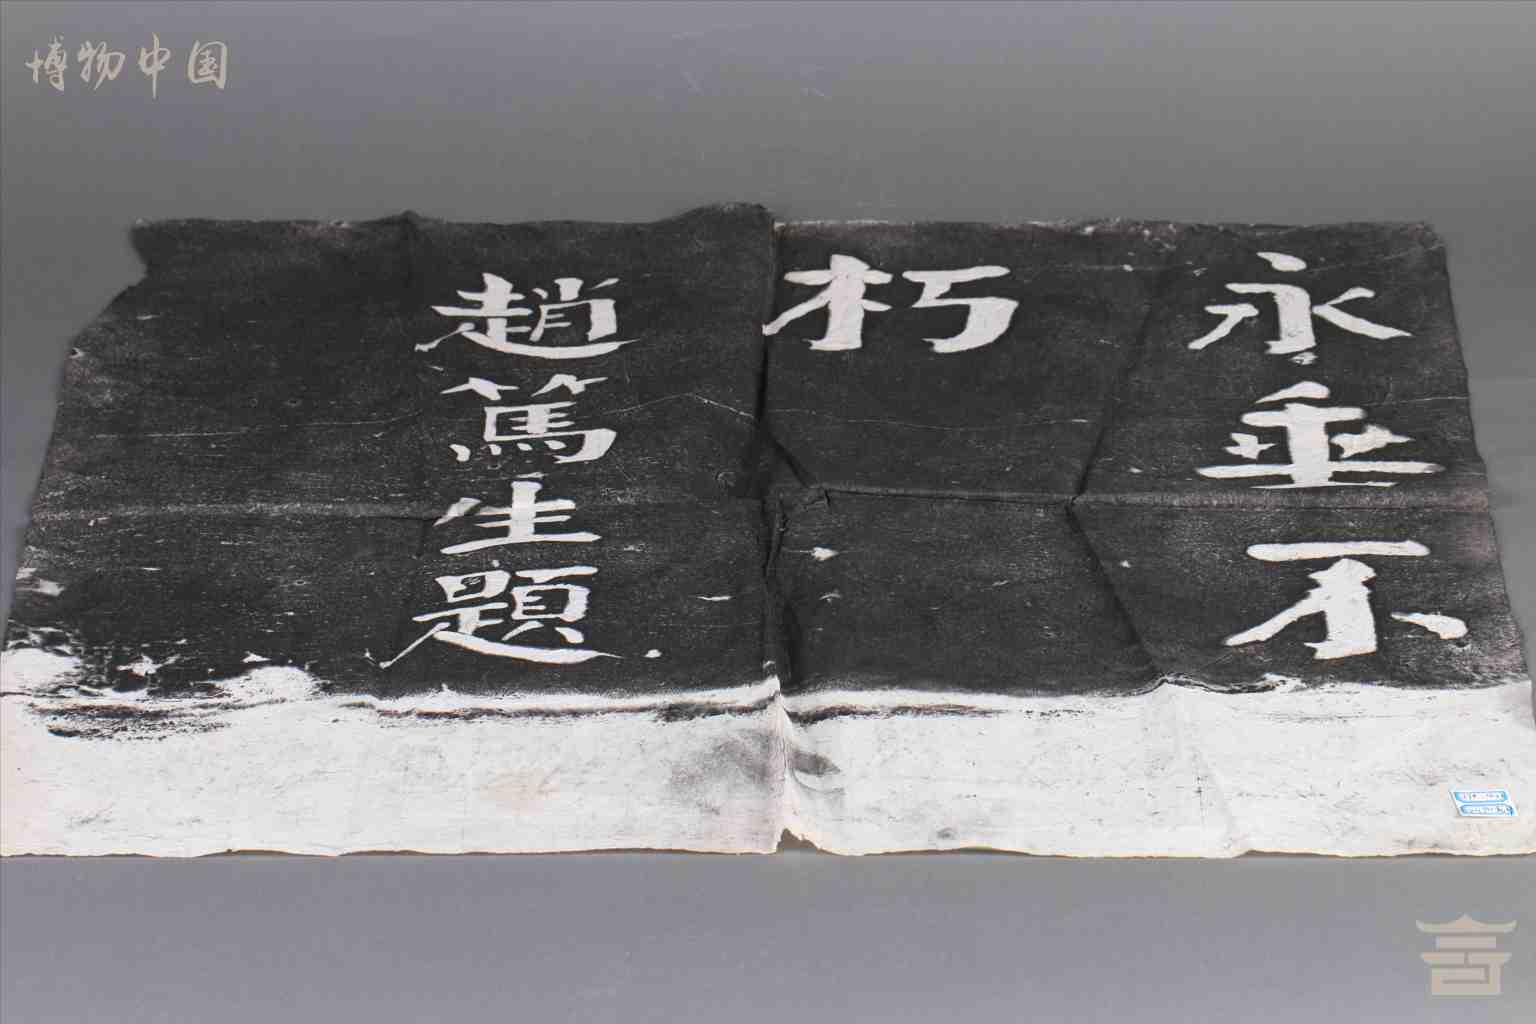 博物中国
永垂不
朽
趙篤生題